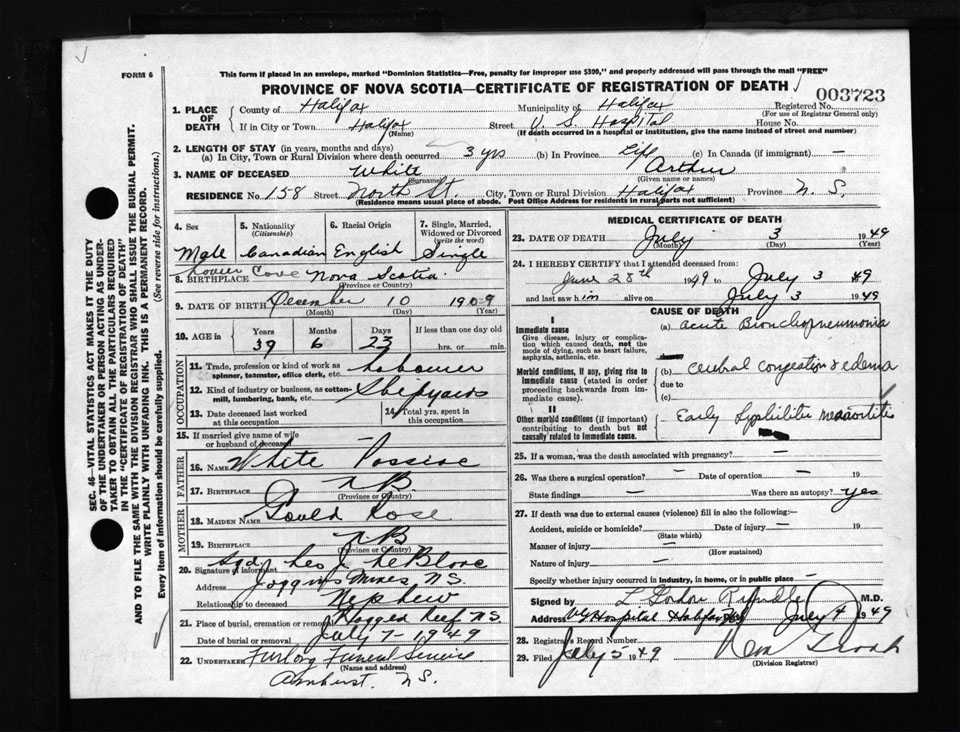 FORM 6
This form if placed in an envelope, marked "Dominion Statistics—Free, penalty for improper use $300," and properly addressed will pass through the mail "FREE"
PROVINCE OF NOVA SCOTIA—CERTIFICATE OF REGISTRATION OF DEATH
003723
1. PLACE OF DEATH { County of Halifax Municipality of Halifax Registered No.
(For use of Registrar General only)
If in City or Town Halifax Street V. S. Hospital House No.
(Name) (If death occurred in a hospital or institution, give the name instead of street and number)
2. LENGTH OF STAY (in years, months and days)
(a) In City, Town or Rural Division where death occurred 3 yrs (b) In Province Life (c) In Canada (if immigrant) —
3. NAME OF DECEASED White Arthur
(Surname) (Given name or names)
RESIDENCE No. 158 Street North St. City, Town or Rural Division Halifax Province N. S.
(Residence means usual place of abode. Post Office Address for residents in rural parts not sufficient)
4. Sex 5. Nationality (Citizenship) 6. Racial Origin 7. Single, Married, Widowed or Divorced (write the word)
Male Canadian English Single
8. BIRTHPLACE Cove Nova Scotia
(Province or Country)
9. DATE OF BIRTH December 10 1909
(Month) (Day) (Year)
10. AGE in { Years Months Days If less than one day old
39 6 23 hrs. or min.
OCCUPATION
11. Trade, profession or kind of work as spinner, teamster, office clerk, etc. Labourer
12. Kind of industry or business, as cotton-mill, lumbering, bank, etc. Shipyards
13. Date deceased last worked at this occupation 14. Total yrs. spent in this occupation
15. If married give name of wife or husband of deceased —
FATHER
16. NAME White
17. BIRTHPLACE N B
(Province or Country)
MOTHER
18. MAIDEN NAME Gould Rose
19. BIRTHPLACE N B
(Province or Country)
20. Signature of informant LeBlanc
Address Joggins Mines N.S.
Relationship to deceased Nephew
21. Place of burial, cremation or removal Ragged Reef N.S.
Date of burial or removal July 7 - 1949
22. UNDERTAKER Furlong Funeral Service
(Name and address)
Amherst. N.S.
MEDICAL CERTIFICATE OF DEATH
23. DATE OF DEATH July 3 1949
(Month) (Day) (Year)
24. I HEREBY CERTIFY that I attended deceased from:
June 28th 1949 to July 3 1949
and last saw him alive on July 3 1949
CAUSE OF DEATH
I
Immediate cause
Give disease, injury or complication which caused death, not the mode of dying, such as heart failure, asphyxia, asthenia, etc.
(a) acute Bronchopneumonia
Morbid conditions, if any, giving rise to immediate cause (stated in order proceeding backwards from immediate cause).
(b) cerebral congestion & edema
due to
(c)
II
Other morbid conditions (if important) contributing to death but not causally related to immediate cause.
Early Syphilitic mesaortitis
25. If a woman, was the death associated with pregnancy? —
26. Was there a surgical operation? — Date of operation — 19
State findings — Was there an autopsy? yes
27. If death was due to external causes (violence) fill in also the following:—
Accident, suicide or homicide? Date of injury — 19
(State which)
Manner of injury —
(How sustained)
Nature of injury —
Specify whether injury occurred in industry, in home, or in public place —
Signed by L Gordon M.D.
Address V. G. Hospital Halifax July 4 1949
28. Registrar's Record Number
29. Filed July 5 1949
(Division Registrar)
SEC. 46—VITAL STATISTICS ACT MAKES IT THE DUTY
OF THE UNDERTAKER OR PERSON ACTING AS UNDER-
TAKER TO OBTAIN ALL THE PARTICULARS REQUIRED
IN THE "CERTIFICATE OF REGISTRATION OF DEATH"
AND TO FILE THE SAME WITH THE DIVISION REGISTRAR WHO SHALL ISSUE THE BURIAL PERMIT.
WRITE PLAINLY WITH UNFADING INK. THIS IS A PERMANENT RECORD.
Every item of information should be carefully supplied. (See reverse side for instructions.)